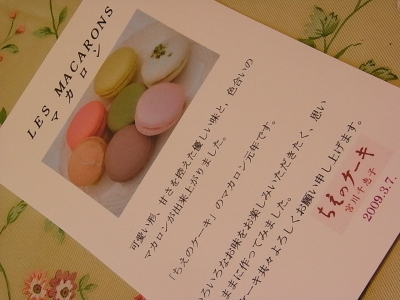 LES MACARONS
マカロン
可愛い形、甘さを控えた優しい味と、色合いの
マカロンが出来上がりました。
「ちえのケーキ」のマカロン元年です。
いろいろなお味をお楽しみいただきたく、思い
ままに作ってみました。
ケーキ共々よろしくお願い申し上げます。
ちえのケーキ
宮川千恵子
2009.3.7.